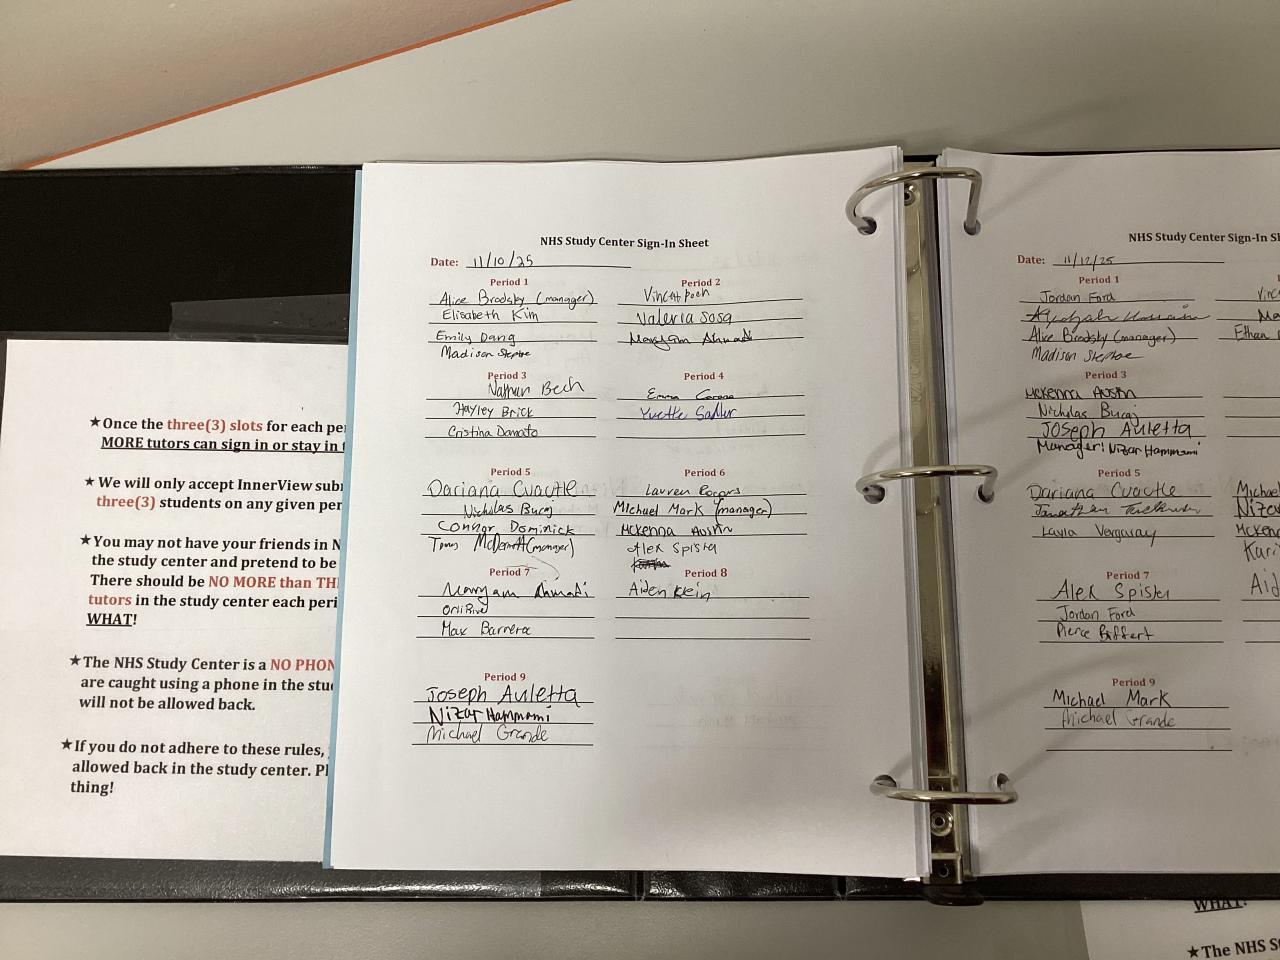 ★Once the three(3) slots for each pe
MORE tutors can sign in or stay in t
★We will only accept InnerView sub
three(3) students on any given per
★You may not have your friends in N
the study center and pretend to be
There should be NO MORE than TH
tutors in the study center each peri
WHAT!
★The NHS Study Center is a NO PHON
are caught using a phone in the stu
will not be allowed back.
★If you do not adhere to these rules,
allowed back in the study center. Pl
thing!
NHS Study Center Sign-In Sheet
Date: 11/10/25
Period 1
Alice Brodsky (manager)
Elisabeth Kim
Emily Dang
Madison Steptoe
Period 2
Valeria Sosa
Maryam Ahmadi
Period 3
Nathan Bech
Hayley Brick
Cristina Donato
Period 4
Emma
Yvette Sadlur
Period 5
Dariana Cuactle
Nicholas Buraj
Connor Dominick
Period 6
Lauren Rogers
Michael Mark (manager)
Mckenna Austin
Alex Spista
Period 7
Maryam Ahmadi
Max Barrera
Period 8
Aiden Klein
Period 9
Joseph Auletta
Nizar Hammami
Michael Grande
NHS Study Center Sign-In S
Date: 11/12/25
Period 1
Jordan Ford
Alice Brodsky (manager)
Madison Steptoe
Ethan
Period 3
Mckenna Austin
Nicholas Buraj
Joseph Auletta
Manager: Nizar Hammami
Period 5
Dariana Cuactle
Jonathan
Layla Vergaray
Michael
Period 7
Alex Spista
Jordan Ford
Pierce
Period 9
Michael Mark
Michael Grande
WHAT!
★The NHS S